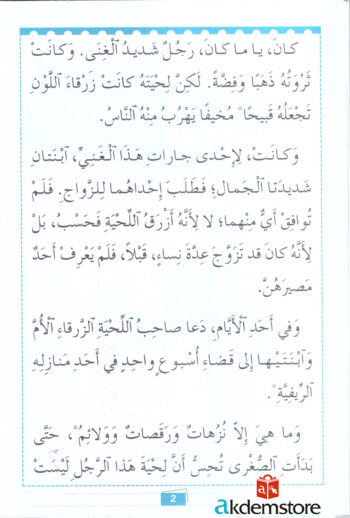 كانَ، يا ما كانَ، رَجُلٌ شَديدُ ٱلْغِنَى. وَكانَتْ
ثَرْوَتُهُ ذَهَبًا وَفِضَّةً. لَكِنَّ لِحْيَتَهُ كانَتْ زَرْقاءَ ٱللَّوْنِ
تَجْعَلُهُ قَبيحًا* مُخيفًا يَهْرُبُ مِنْهُ ٱلنَّاسُ.
وَكانَتْ، لِإِحْدى جاراتِ هَذَا ٱلْغَنِيِّ، ٱبْنَتانِ
شَديدَتا ٱلْجَمالِ؛ فَطَلَبَ إِحْداهُما لِلزَّواجِ. فَلَمْ
تُوافِقْ أَيٌّ مِنْهُما؛ لا لِأَنَّهُ أَزْرَقُ ٱللِّحْيَةِ فَحَسْبُ، بَلْ
لِأَنَّهُ كانَ قد تَزَوَّجَ عِدَّةَ نِساءٍ، قَبْلاً، فَلَمْ يَعْرِفْ أَحَدٌ
مَصيرَهُنَّ.
وَفي أَحَدِ ٱلْأَيَّامِ، دَعا صاحِبُ ٱللِّحْيَةِ ٱلزَّرْقاءِ ٱلْأُمَّ
وَٱبْنَتَيْها إِلى قَضاءِ أُسْبوعٍ واحِدٍ في أَحَدِ مَنازِلِهِ
ٱلرِّيفِيَّةِ*.
وَما هِيَ إِلاّ نُزُهاتٌ وَرَقَصاتٌ وَوَلائِمُ*، حَتَّى
بَدَأَتِ ٱلصُّغْرى تُحِسُّ أَنَّ لِحْيَةَ هَذا ٱلرَّجُلِ لَيْسَتْ
2
akdemstore